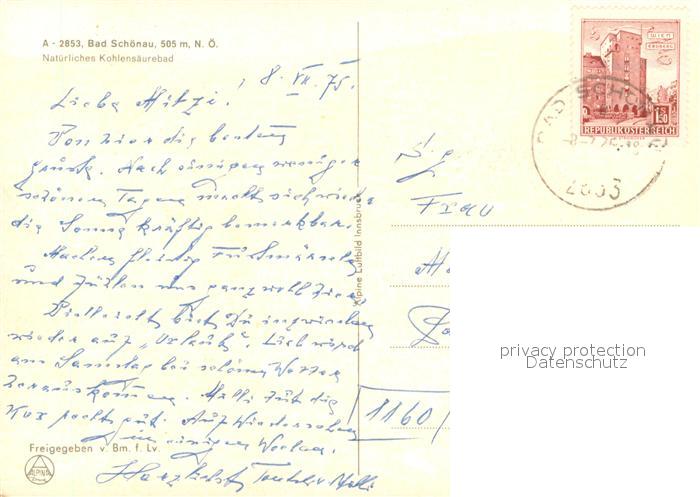 A - 2853, Bad Schönau, 505 m, N. Ö.
Natürliches Kohlensäurebad
8. VII. 75.
Liebe Mitzi!
Von hier die besten
Grüße. Nach einigen weniger
schönen Tagen macht sich wieder
die Sonne kräftig bemerkbar.
Machen fleißig Frühmärsche
und fühlen uns ganz wohl hier.
Vielleicht bist Du inzwischen
wieder auf "Urlaub".
am Samstag bei schönem Wetter
herauskommen. tut die
Kur recht gut. Auf Wiedersehen
in einigen Wochen.
Herzlichst
Freigegeben v. Bm. f. Lv.
ALPINA
Alpine Luftbild Innsbruck
WIEN
ERDBERG
S 1.50
REPUBLIK ÖSTERREICH
BAD SCHÖNAU
2853
Frau
1160
privacy protection
Datenschutz